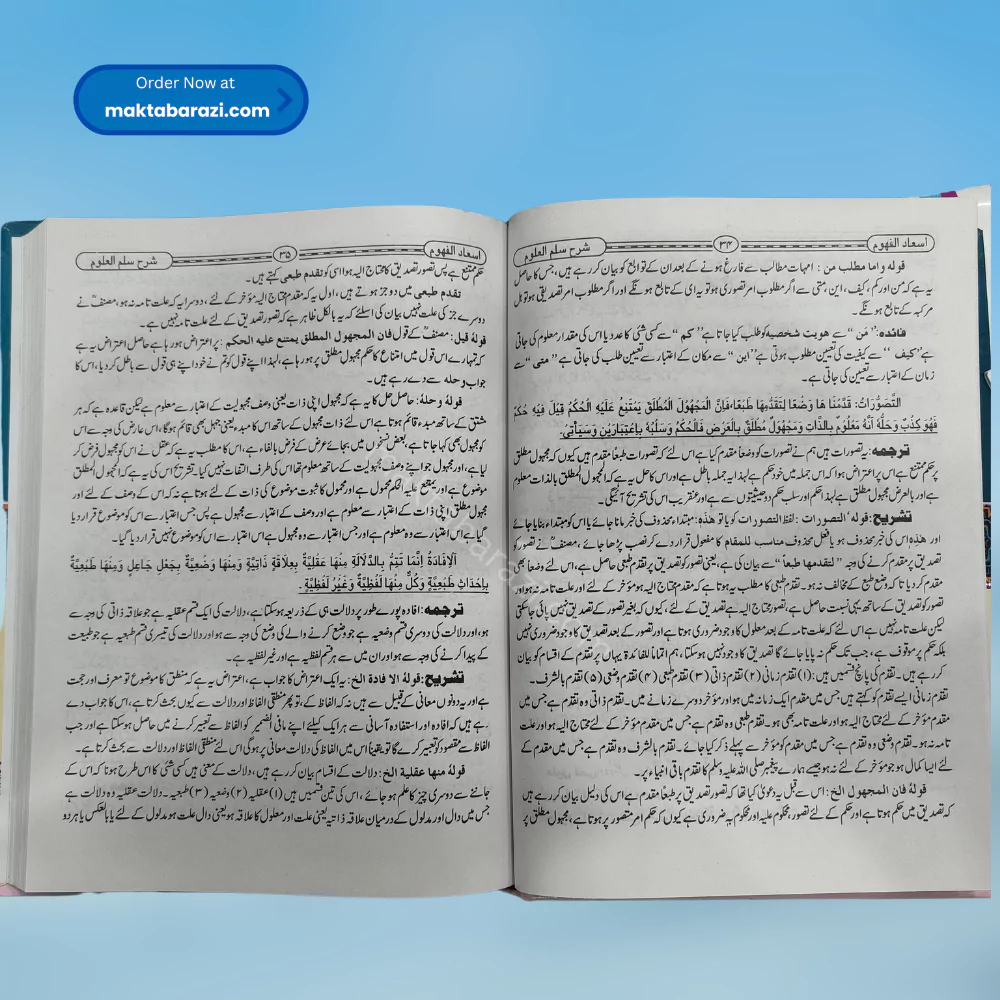 Order Now at
maktabarazi.com
اسعاد الفهوم ۳۴ شرح سلم العلوم
قوله واما مطلب من : امہات مطالب سے فارغ ہونے کے بعد ان کے توابع کو بیان کر رہے ہیں، جس کا حاصل
یہ ہے کہ من اور کم، کیف، این، متی سے اگر مطلوب امر تصوری ہو تو یہ ای کے تابع ہونگے اور اگر مطلوب امر تصدیقی ہو تو ہل
مرکبہ کے تابع ہونگے۔
فائدہ: ”مَن“ سے ھویت شخصیہ کو طلب کیا جاتا ہے ”کم“ سے کسی شئی کا عدد یا اس کی مقدار معلوم کی جاتی
ہے ”کیف“ سے کیفیت کی تعیین مطلوب ہوتی ہے ”این“ سے مکان کے اعتبار سے تعیین طلب کی جاتی ہے ”متی“ سے
زمان کے اعتبار سے تعیین کی جاتی ہے۔
التَّصَوُّرَاتُ: قَدَّمْنَا هَا وَضْعًا لِتَقَدُّمِهَا طَبْعًا، فَإِنَّ الْمَجْهُوْلَ الْمُطْلَقَ يَمْتَنِعُ عَلَيْهِ الْحُكْمُ قِيْلَ فِيْهِ حُكْمٌ
فَهُوَ كِذْبٌ وَحَلُّهُ اَنَّهُ مَعْلُوْمٌ بِالذَّاتِ وَمَجْهُوْلٌ مُطْلَقٌ بِالْعَرْضِ فَالْحُكْمُ وَسَلْبُهُ بِاِعْتِبَارَيْنِ وَسَيَاْتِيْ.
ترجمہ: یہ تصورات ہیں ہم نے تصورات کو وضعاً مقدم کیا ہے اس لئے کہ تصورات طبعاً مقدم ہیں کیوں کہ مجہول مطلق
پر حکم ممتنع ہے اس پر اعتراض ہوا کہ اس جملہ میں خود حکم ہے لہٰذا یہ جملہ باطل ہے اور اس کا حل یہ ہے کہ المجہول المطلق بالذات معلوم
ہے اور بالعرض مجہول مطلق ہے لہٰذا حکم اور سلب حکم دو حیثیتوں سے ہے اور عنقریب اس کی تشریح آئیگی۔
تشریح: قوله التصورات : لفظ التصورات کو یا تو ھٰذہ: مبتداء محذوف کی خبر مانا جائے یا اس کو مبتداء بنایا جائے
اور ھٰذہ اس کی خبر محذوف ہو یا فعل محذوف مناسب للمقام کا مفعول قرار دے کر نصب پڑھا جائے، مصنفؒ نے تصور کو
تصدیق پر مقدم کرنے کی وجہ ”لتقدمها طبعاً“ سے بیان کی ہے، یعنی تصور تصدیق پر تقدم طبعی حاصل ہے، اس لئے وضعاً بھی
مقدم کر دیا تا کہ وضع طبع کے مخالف نہ ہو۔ تقدم طبعی کا مطلب یہ ہوتا ہے کہ مقدم محتاج الیہ ہو مؤخر کے لئے اور علت تامہ نہ ہو، اور
تصور کو تصدیق کے ساتھ یہی نسبت حاصل ہے، تصور محتاج الیہ ہے تصدیق کے لئے، کیوں کہ بغیر تصور کے تصدیق نہیں پائی جاسکتی
لیکن علت تامہ نہیں ہے اس لئے کہ علت تامہ کے بعد معلول کا وجود ضروری ہوتا ہے اور تصور کے بعد تصدیق کا وجود ضروری نہیں
بلکہ حکم پر موقوف ہے، جب تک حکم نہ پایا جائے گا تصدیق کا وجود نہیں ہوسکتا، ہم اتماماً للفائدۃ یہاں پر تقدم کے اقسام کو بیان
کر رہے ہیں۔ تقدم کی پانچ قسمیں ہیں: (۱) تقدم زمانی (۲) تقدم ذاتی (۳) تقدم طبعی (۴) تقدم وضعی (۵) تقدم بالشرف۔
تقدم زمانی ایسے تقدم کو کہتے ہیں جس میں مقدم ایک زمانہ میں ہو اور مؤخر دوسرے زمانے میں۔ تقدم ذاتی وہ تقدم ہے جس میں
مقدم مؤخر کے لئے محتاج الیہ ہو اور علت تامہ بھی ہو۔ تقدم طبعی وہ تقدم ہے جس میں مقدم مؤخر کے لئے محتاج الیہ ہو اور علت
تامہ نہ ہو۔ تقدم وضعی وہ تقدم ہے جس میں مقدم کو مؤخر سے پہلے ذکر کیا جائے۔ تقدم بالشرف وہ تقدم ہے جس میں مقدم کے
لئے ایسا کمال ہو جو مؤخر کے لئے نہ ہو جیسے ہمارے پیغمبر صلی اللہ علیہ وسلم کا تقدم باقی انبیاء پر۔
قوله فان المجهول الخ: اس سے قبل یہ دعویٰ کیا تھا کہ تصور تصدیق پر طبعاً مقدم ہے اس کی دلیل بیان کر رہے ہیں
کہ تصدیق میں حکم ہوتا ہے اور حکم کے لئے تصور، محکوم علیہ اور محکوم بہ ضروری ہے کیوں کہ حکم امر متصور پر ہوتا ہے، مجہول مطلق پر
اسعاد الفهوم ۳۵ شرح سلم العلوم
حکم ممتنع ہے پس تصور تصدیق کا محتاج الیہ ہوا اسی کو تقدم طبعی کہتے ہیں۔
تقدم طبعی میں دو جز ہوتے ہیں، اول یہ کہ مقدم محتاج الیہ مؤخر کے لئے، دوسرا یہ کہ علت تامہ نہ ہو، مصنفؒ نے
دوسرے جز کی علت نہیں بیان کی اسلئے کہ یہ بالکل ظاہر ہے کہ تصور تصدیق کے لئے علت تامہ نہیں ہے۔
قوله قیل: مصنفؒ کے قول فان المجهول المطلق يمتنع عليه الحكم : پر اعتراض ہو رہا ہے حاصل اعتراض یہ ہے
کہ تمہارے اس قول میں امتناع کا حکم مجہول مطلق پر ہو رہا ہے، لہٰذا اپنے قول کو تم نے خود اپنے ہی قول سے باطل کر دیا، اس کا
جواب وحله سے دے رہے ہیں۔
قوله وحلهٗ: حاصل حل کا یہ ہے کہ مجہول اپنی ذات یعنی وصف مجہولیت کے اعتبار سے معلوم ہے لیکن قاعدہ ہے کہ ہر
مشتق کے ساتھ مبدء قائم ہوتا ہے اس لئے ذات مجہول کے ساتھ اس کا مبدء یعنی جہل بھی قائم ہوگا، اس عارض کی وجہ سے اس
کو مجہول بھی کہا جاتا ہے، بعض نسخوں میں بجائے عرض کے فرض بالفاء ہے، اس کا مطلب یہ ہے کہ عقل نے اس کو مجہول فرض کر
لیا ہے، اور مجہول جو اپنے وصف مجہولیت کے ساتھ معلوم تھا اس کی طرف التفات نہیں کیا۔ تشریح اس کی یہ ہے کہ المجہول المطلق
موضوع ہے اور یمتنع علیہ الحکم محمول ہے اور محمول کا ثبوت موضوع کی ذات کے لئے ہوتا ہے نہ کہ اس کے وصف کے لئے اور
مجہول مطلق اپنی ذات کے اعتبار سے معلوم ہے اور وصف کے اعتبار سے مجہول ہے پس جس اعتبار سے اس کو موضوع قرار دیا
گیا ہے اس اعتبار سے وہ معلوم ہے اور جس اعتبار سے وہ مجہول ہے اس اعتبار سے اس کو موضوع نہیں قرار دیا گیا۔
اَلْاِفَادَةُ اِنَّمَا تَتِمُّ بِالدَّلَالَةِ مِنْهَا عَقْلِيَّةٌ بِعِلَاقَةٍ ذَاتِيَّةٍ وَمِنْهَا وَضْعِيَّةٌ بِجَعْلِ جَاعِلٍ وَمِنْهَا طَبْعِيَّةٌ
بِاِحْدَاثِ طَبِيْعَةٍ وَكُلٌّ مِنْهَا لَفْظِيَّةٌ وَغَيْرُ لَفْظِيَّةٍ.
ترجمہ: افادہ پورے طور پر دلالت ہی کے ذریعہ ہوسکتا ہے، دلالت کی ایک قسم عقلیہ ہے جو علاقہ ذاتی کی وجہ سے
ہو، اور دلالت کی دوسری قسم وضعیہ ہے جو وضع کرنے والے کی وضع کی وجہ سے ہو اور دلالت کی تیسری قسم طبعیہ ہے جو طبیعت
کے پیدا کرنے کی وجہ سے ہو اور ان میں سے ہر قسم لفظیہ ہے اور غیر لفظیہ ہے۔
تشریح: قولهٗ الا فادة الخ: یہ ایک اعتراض کا جواب ہے، اعتراض یہ ہے کہ منطق کا موضوع تو معرف اور حجت
ہے اور یہ دونوں معانی کے قبیل سے ہیں نہ کہ الفاظ کے، تو پھر منطقی الفاظ اور دلالت سے کیوں بحث کرتا ہے، اس کا جواب دے
رہے ہیں کہ افادہ اور استفادہ آسانی سے ہر ایک کیلئے اپنے مافی الضمیر کو الفاظ سے تعبیر کرنے میں حاصل ہوسکتا ہے اور جب
الفاظ سے مقصود کو تعبیر کرے گا تو یقیناً اس میں الفاظ کی دلالت معانی پر ہوگی اس لئے منطقی الفاظ اور دلالت سے بحث کرتا ہے۔
قوله منها عقلية الخ: دلالت کے اقسام بیان کر رہے ہیں، دلالت کے معنی ہیں کسی شئی کا اس طرح ہونا کہ اس کے
جاننے سے دوسری چیز کا علم ہو جائے، اس کی تین قسمیں ہیں (۱) عقلیہ (۲) وضعیہ (۳) طبعیہ۔ دلالت عقلیہ وہ دلالت ہے
جس میں دال اور مدلول کے درمیان علاقہ ذاتیہ یعنی علت اور معلول کا علاقہ ہو یعنی دال علت ہو مدلول کے لئے یا بالعکس یا ہر دو